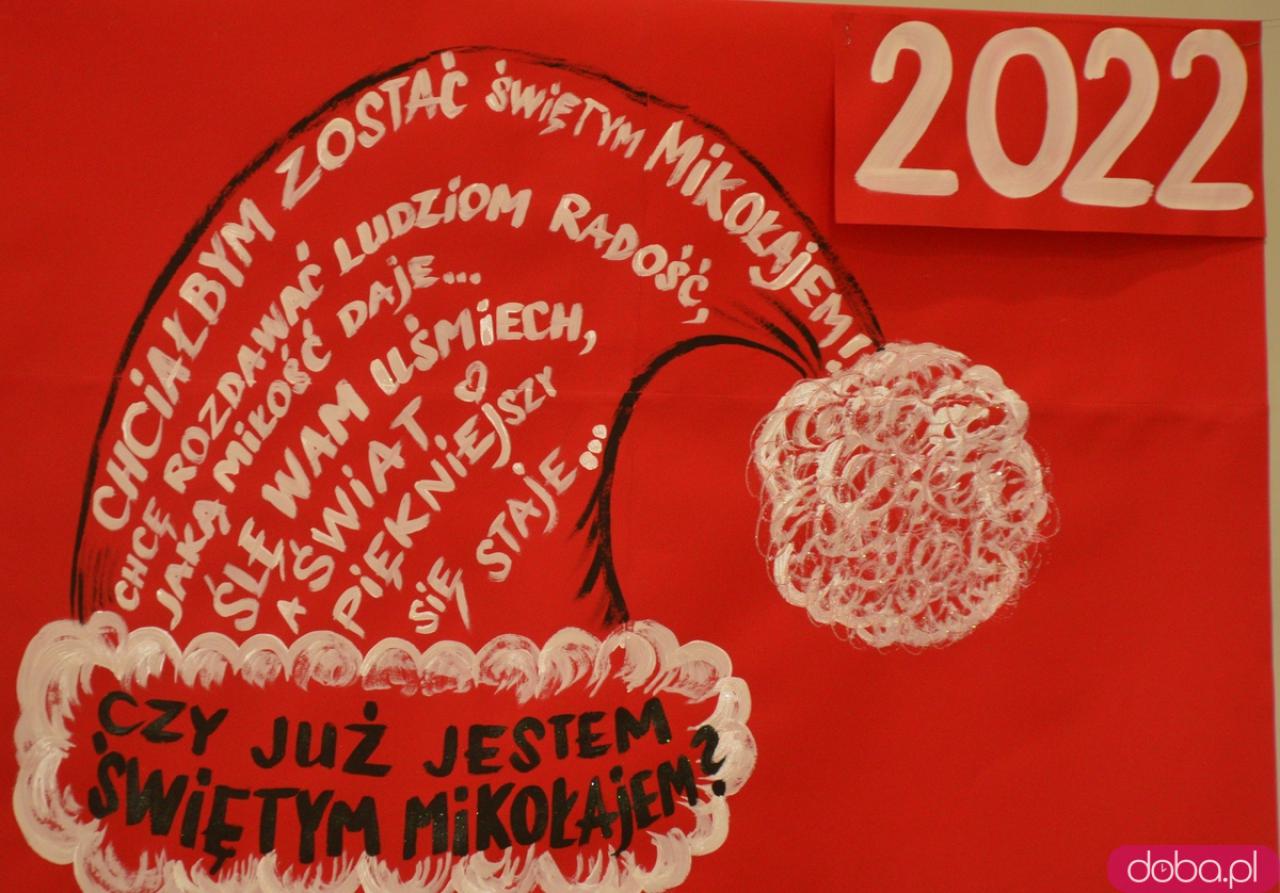 2022
CHCIAŁBYM ZOSTAĆ ŚWIĘTYM MIKOŁAJEM!
CHCĘ ROZDAWAĆ LUDZIOM RADOŚĆ,
JAKĄ MIŁOŚĆ DAJE...
ŚLĘ WAM UŚMIECH,
A ŚWIAT
PIĘKNIEJSZY
SIĘ STAJE...
CZY JUŻ JESTEM
ŚWIĘTYM MIKOŁAJEM?
doba.pl